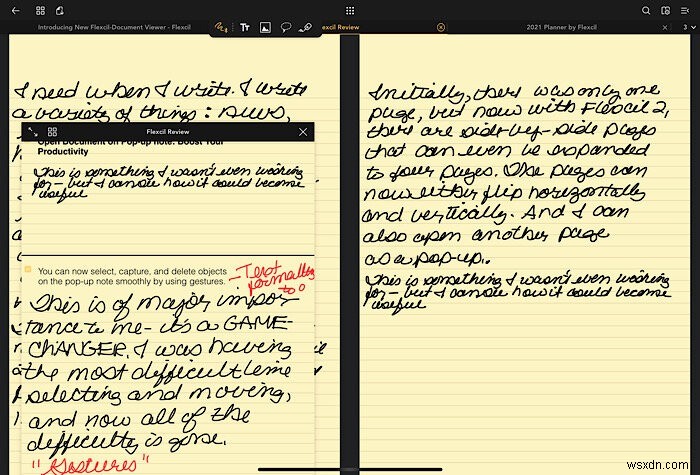 Introducing New Flexcil-Document Viewer - Flexcil
Tr
excil Review
2021 Planner by Flexcil
3
I need when I write. I write
a variety of things:
Flexcil Review
Open Document on Pop-up note: Boost Your
Productivity
This is something I wasn't even working
for - but I can see how it could become
useful
You can now select, capture, and delete objects
on the pop-up note smoothly by using gestures.
- Text
formatting
too
This is of major impor-
tance to me - it's a GAME-
CHANGER. I was having
the most difficult time
selecting and moving,
and now all of the
difficulty is gone.
"Gestures"
Initially, there was only one
page, but now with Flexcil 2,
there are side-by-side pages
that can even be expanded
to four pages. The pages can
now either flip horizontally
and vertically. And I can
also open another page
as a pop-up.
This is something I wasn't even working
for - but I can see how it could become
useful
wsxdn.com